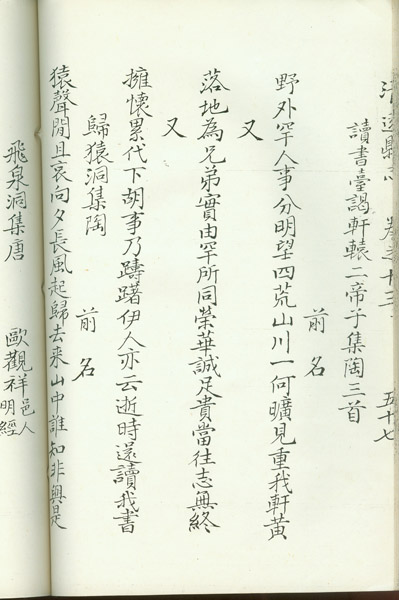 清遠縣志 卷之十三 五十七
讀書臺謁軒轅二帝子集陶三首
前名
野外罕人事分明望四荒山川一何曠見重我軒黃
又
落地為兄弟實由罕所同榮華誠足貴當往志無終
又
擁懷累代下胡事乃躊躇伊人亦云逝時還讀我書
歸猿洞集陶
前名
猿聲閒且哀向夕長風起歸去来山中誰知非與是
飛泉洞集唐
歐觀祥邑人明經